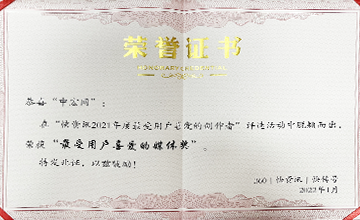 荣誉证书
HONORARY CREDENTIAL
恭喜“申宏网”：
在“快资讯2021年度最受用户喜爱的创作者”评选活动中脱颖而出，
荣获“最受用户喜爱的媒体奖”。
特发此证，以兹鼓励！
360 | 快资讯 | 快传号
2022年1月